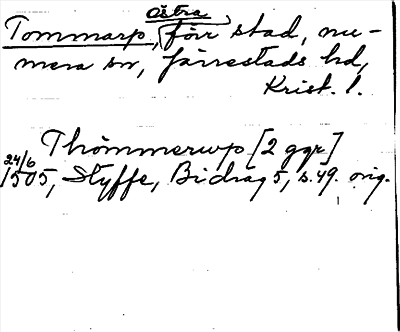 Östra
Tommarp, förr stad, nu-
mera sn, Järrestads hd,
Krist. l.
Thömmerup [2 ggr]
24/6
1505, Styffe, Bidrag 5, s. 49. orig.